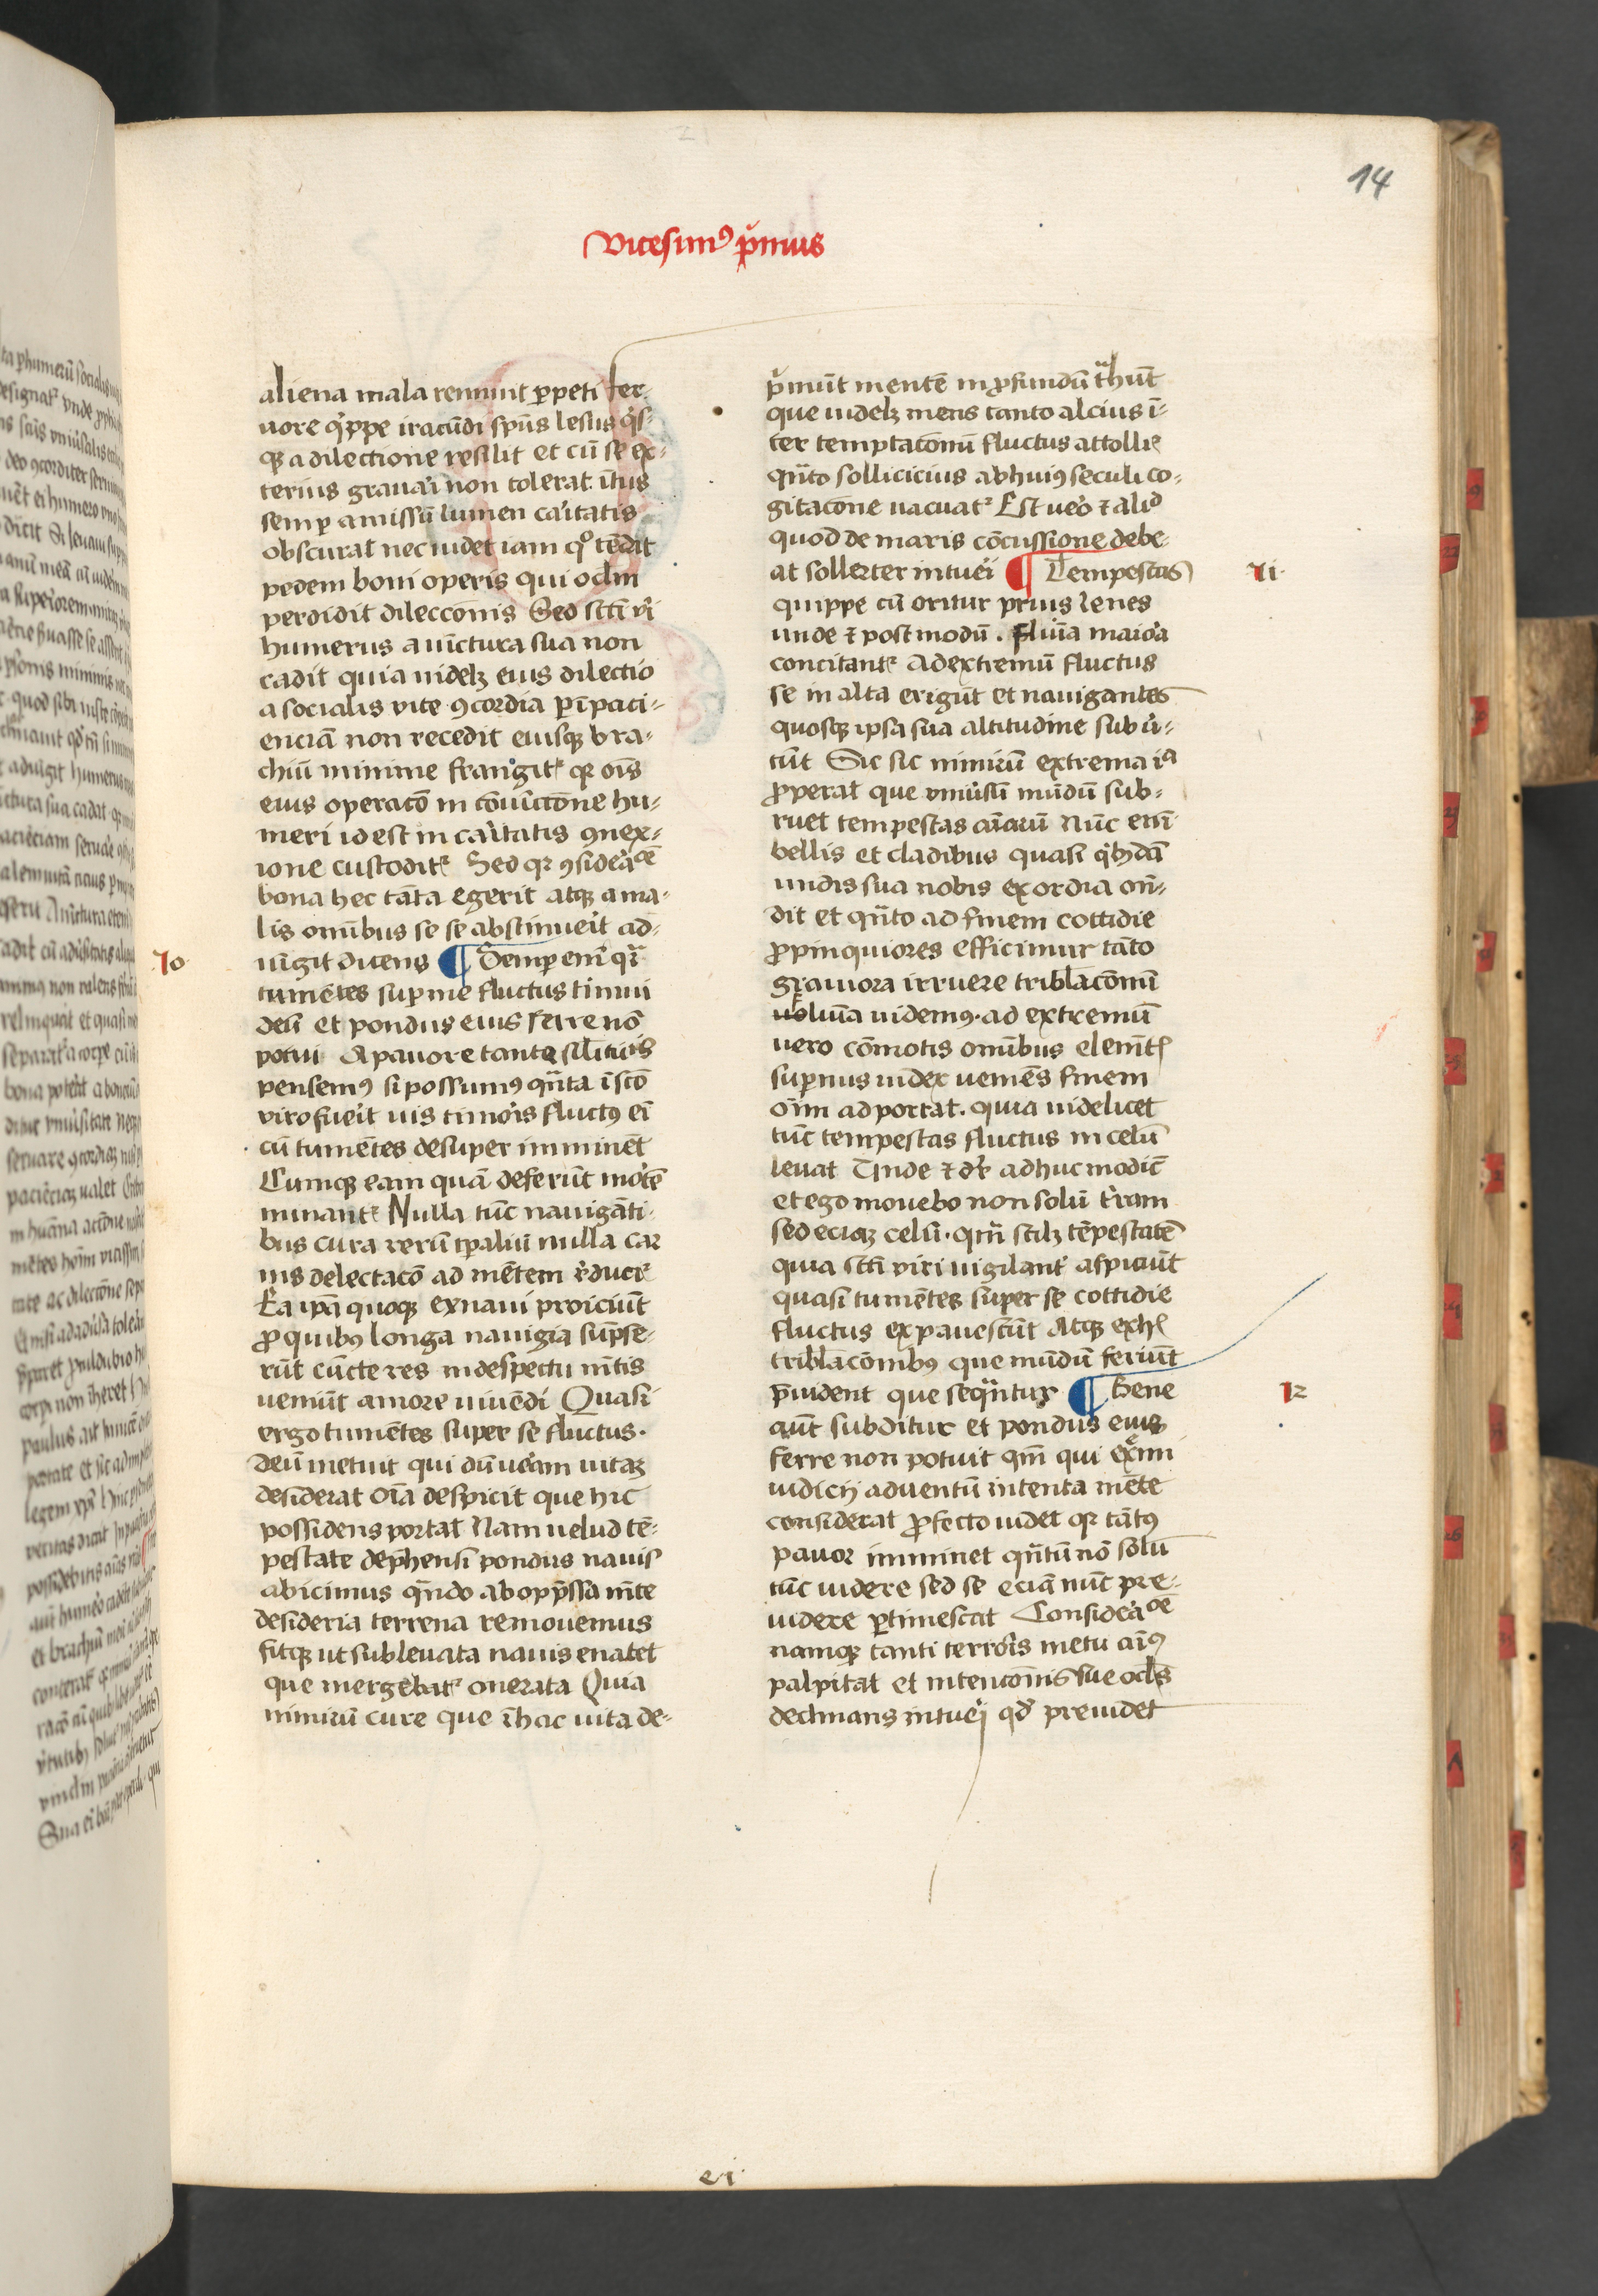 14
vicesimꝰ pͥmus
aliena mala rennuit ꝑpeti fer-
uore qͥppe iracūdi spūs lesus qͥs-
qꝫ a dilectione resilit et cū se ex-
terius grauaꝛi non tolerat. ītus
semꝑ amissū lumen caritatis
obscurat nec uidet iam qͦ tēdit
pedem boni operis qui oclm
perdidit dileccionis Sed sctī vͥi
humerus a iūctura sua non
cadit quia uidelꝫ eius dilectio
a socialis vite ꝯcordia ꝑ īpaci-
enciā non recedit eiusqꝫ bra-
chiū minime frangitᷣ qꝛ oīs
eius operacō in cōiūctōne hu-
meri id est in caritatis ꝯnex-
ione custoditᷣ Sed qꝛ ꝯsideracōe
bona hec tāta egerit atqꝫ a ma-
lis omībus se se abstinueit ad-
iūgit dicens ¶ Semꝑ enī qͣi
10
tumētes suꝑ me fluctus timui
deū et pondus eius ferre nō
potui A pauore tante silitudīs
pensemꝰ si possumꝰ qn̄ta ī sctō
viro fueit uis timoris fluctꝰ eī
cū tumētes desuper imminēt
Cumqꝫ eam quā deferūt mortē
minantᷣ Nulla tūc nauigāti-
bus cura rerū tꝑaliū nulla car
nis delectacō ad mētem reducitᷣ
Ea ip̄a quoqꝫ ex naui proiciūt
ꝓ quibus longa nauigia sūpse-
rūt cūcte res in despectu mētis
ueniūt amore uiuēdi Quasi
ergo tumētes super se fluctus.
deū metuit qui dū uerām uitaꝫ
desiderat oīa despicit que hic
possidens portat Nam uelud tē-
pestate dep̄hensi pondus nauis
abicimus qn̄do ab opp̄ssa mēte
desideria terrena remouemus
fitqꝫ ut subleuata nauis enatet
que mergebatᷣ onerata Quia
nimirū cure que ī hac uita de-
pͥmūt mentē in ꝓfundū tͣhūt
que uidelꝫ mens tanto alcius ī-
ter temptaconū fluctus attollitᷣ
qn̄to sollicicius ab huiꝰ seculi co-
gitacōne uacuatᷣ Est ueo ⁊ alid
quod de maris cōcussione debe-
at sollerter intuei ¶ Tempestas
11
quippe cū oritur prius lenes
unde ⁊ post modū. fluīa maioꝛa
concitantᷣ Ad extremū fluctus
se in alta erigūt et nauigantes
quosqꝫ ipsa sua altitudine subū-
tūt Sic sic nimirū extrema ia
ꝓperat que vniuͥsū mūdū sub-
ruet tempestas aīarū Nūc enī
bellis et cladibus quasi qͥbꝫdā
undis sua nobis exordia on̄-
dit et qn̄to ad finem cottidie
ꝓpinquiores efficimur tāto
grauiora irruere tribl̄aconū
uoluīa uidemꝰ. ad extremū
uero cōmotis omībus elemētis
suꝑnus iudex ueniēs finem
oīm adportat. quia uidelicet
tūc tempestas fluctus in celū
leuat Unde ⁊ dr̄ adhuc modicū
et ego mouebo non solū trām
sed eciaꝫ celū. qm̄ scilꝫ tēpestatē
quia sctī viri uigilantͬ aspiciūt
quasi tumētes super se cottidie
fluctus expauescūt Atqꝫ ex hiis
tribl̄acōnibꝰ que mūdū feriūt
p̄uident que seqͣntur ¶ Bene
12
aūt subditur et pondus eius
ferre non potuit qm̄ qui ext̄mi
iudicij aduentū intenta mēte
considerat ꝓfecto uidet qꝛ tātꝰ
pauor imminet qn̄tū nō solū
tūc uidere sed se eciā nūc pre-
uidere ꝑtimescat Consideracōe
namqꝫ tanti terroris metu aīꝰ
palpitat et intencōnis sue ocl̄os
declinans intuei qd̄ preuidet
ei